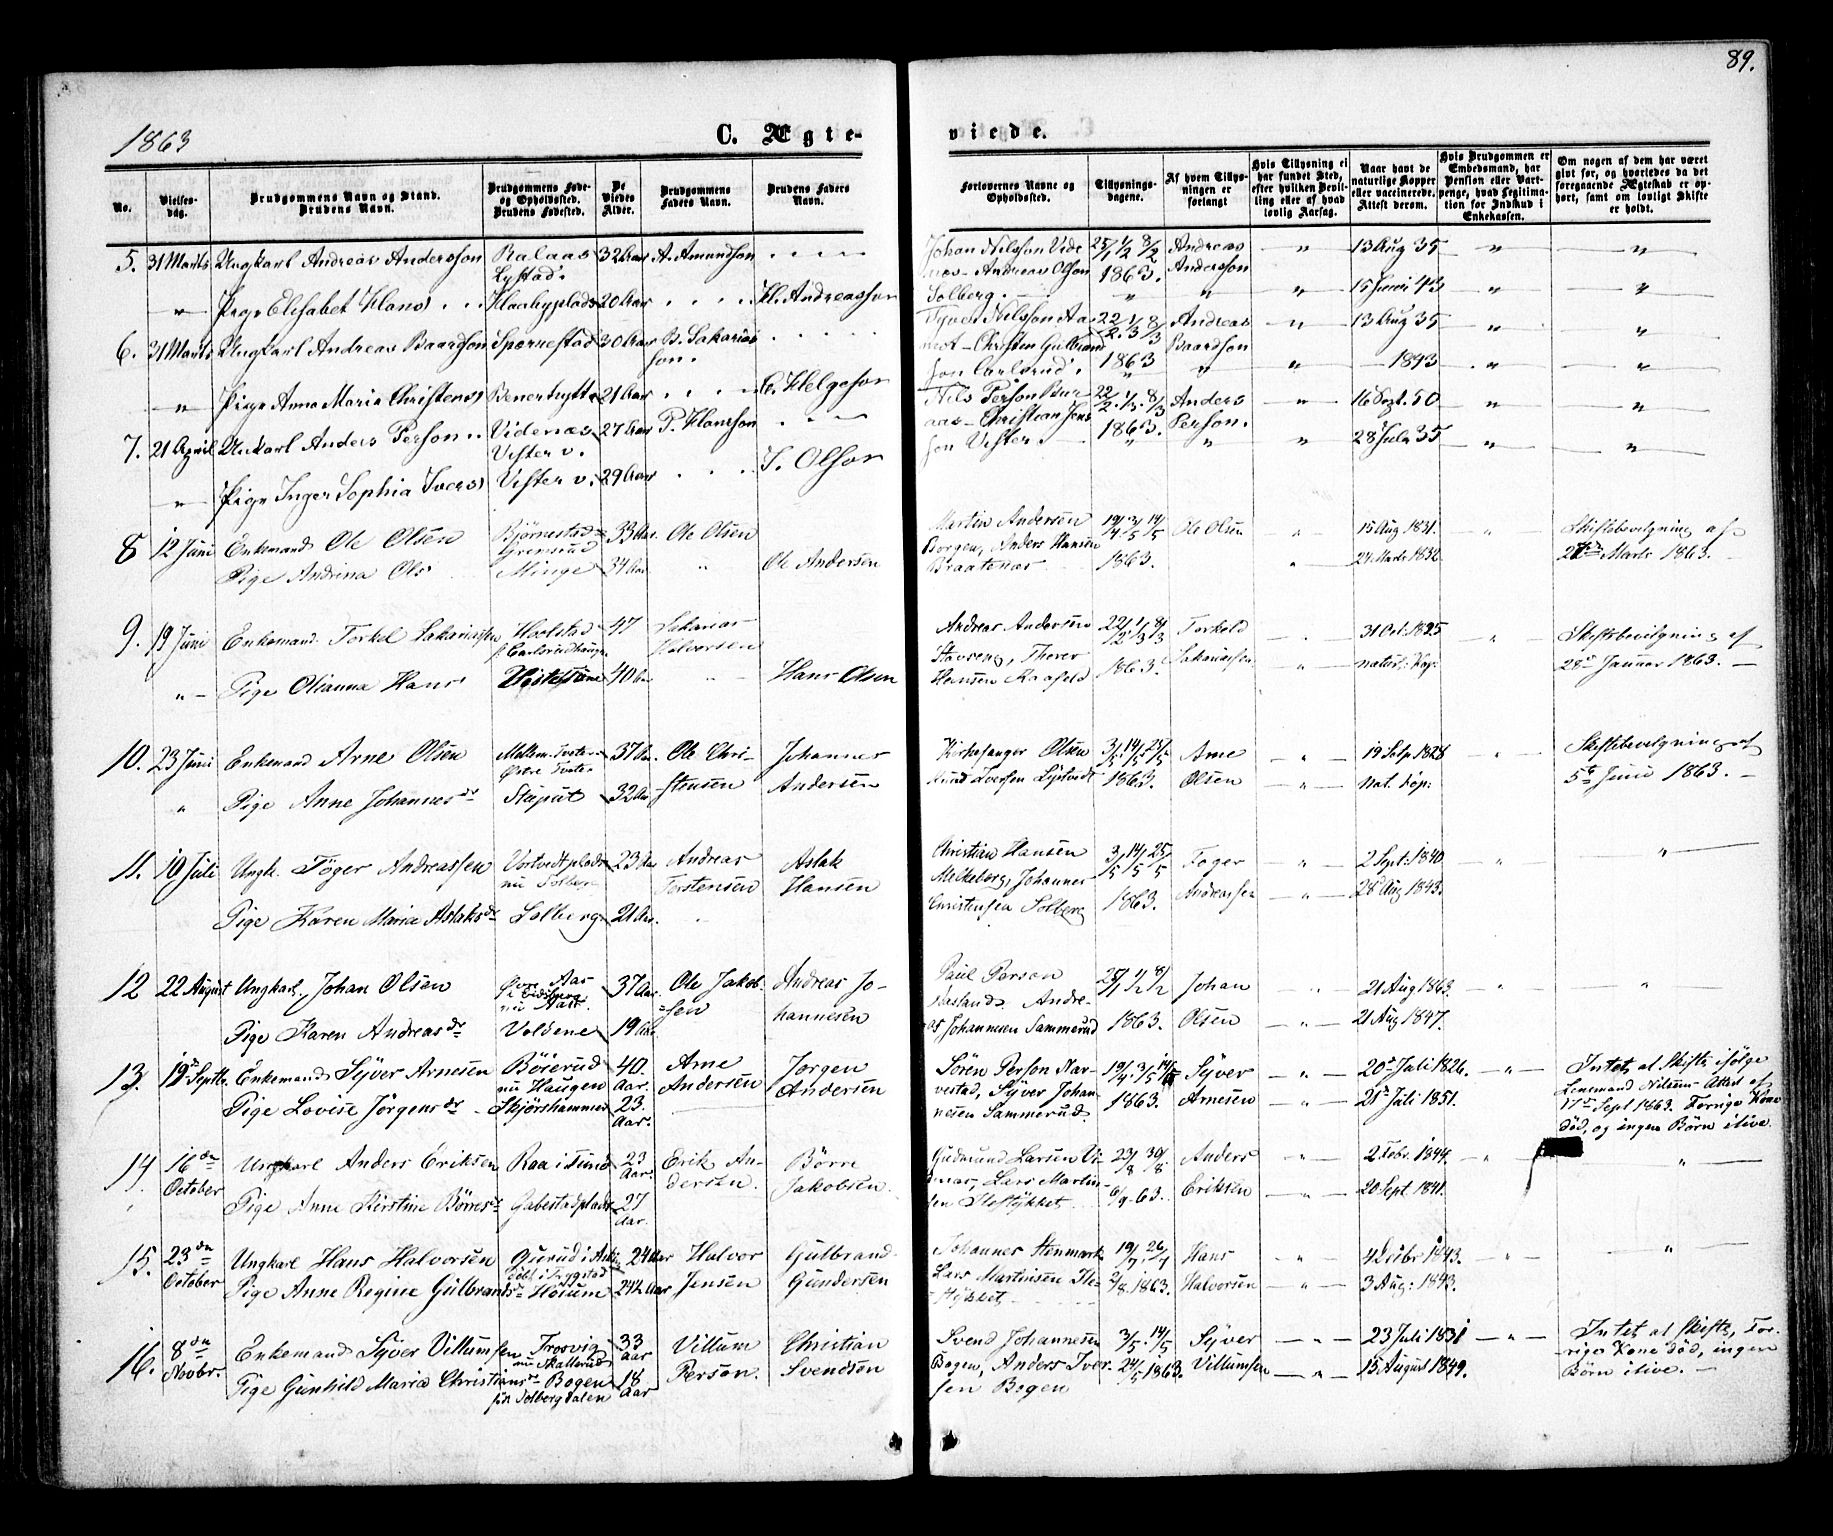 89.
1863
C. Ægte-
viede.
No.
Vielses-dag.
Brudgommens Navn og Stand.
Brudens Navn.
Brudgommens Føde- og Opholdssted.
Brudens Fødested.
De Viedes Alder.
Brudgommens Faders Navn.
Brudens Faders Navn.
Forlovernes Navne og Opholdssted.
Tillysnings-dagene.
Af hvem Tillysningen er forlangt
Hvis Tillysning ei har fundet Sted, efter hvilken Bevilling eller af hvad lovlig Aarsag.
Naar havt de naturlige Kopper eller vaccinerede. Attest derom.
Hvis Brudgommen er Embedsmand, har Pension eller Vartpenge, hvad Legitimation for Indskud i Enkekassen.
Om nogen af dem har været gift før, og hvorledes da det foregaaende Ægteskab er ophørt, samt om lovligt Skifte er holdt.
5. 31 Marts Ungkarl Andreas Andersson Ralaas Lystad. 32 Aar A. Amundson
Johan Nilsson Videnæs - Andreas Olson Solberg. 25/1 1/2 8/2 1863. Andreas Andersson 13 Aug 35
" Pige Elisabet Hans Haabyplads 20 Aar H. Andreasson 15 Juni 43
6. 31 Marts Ungkarl Andreas Baardson Spornestad 30 Aar B. Sakariasson.
Syver Nilsson - Christen Gulbrandson Carlsrud. 22/2 1/3 8/3 1863 Andreas Baardson 13 Aug 35
" Pige Anna Maria Christens 21 Aar C. Helgeson - 1843
7. 21 April Unkarl Anders Person Videnæs Vister v. 27 Aar P. Hansson
Nils Person - Christian Jensson Vister. 22/2. 1/3. 8/3 1863. Anders Person. 16 Sept. 50
" Pige Inger Sophia Ivers Vister v. 29 Aar I. Olson 28 Juli 35
8 12 Juni Enkemand Ole Olsen Bjørnestad Grensund 33 Aar. Ole Olsen
Martin Andersen Borgen, Anders Hansen Braatenæs 19/4. 3/5 14/5 1863. Ole Olsen 15 Aug. 1831. Skiftebevilgning af 27de Marts 1863.
Pige Andrina Ols Minge 34 Aar Ole Andersen 24 Marts 1832
9. 19 Juni Enkemand. Torkel Sakariassen Hoelstad 47 Sakarias Halvorsen
Andreas Andersen Stavseng, Thorer Hansen 22/2 1/3 8/3 1863. Torkeld Sakariassen 31 Oct. 1825 Skiftebevilgning af 28de Januar 1863.
" Pige Olianna Hans 40 Aar Hans Olsen naturl. Kop.
10. 23 Juni Enkemand Arne Olsen Mellem-Tveter Øvre Tveter 37 Aar. Ole Christensen Johannes Andersen
Kirkesanger Olsen Knud Iversen Lystvedt 3/5. 14/5 25/5 1863. Arne Olsen 19 Sept. 1828 Skiftebevilgning af 5te Juni 1863.
" Pige Anne Johannesdr Stuput 32 Aar nat. Kop.
11. 10 Juli Ungk. Töger Andreassen Vortvedtplads nu Solberg 23 Aar Andreas Torstensen Aslak Hansen
Christian Hansen Melkeborg, Johannes Christensen Solberg 3/5 14/5 25/5 1863. Toger Andreassen 2 Sept. 1840
Pige Karen Maria Aslaksdr Solberg 21 Aar. 28 Aug 1843.
12 22 August Ungkarl, Johan Olsen Øvre Aas 37 Aar. Ole Jakobsen Andreas Johannesen
Paul Person Andreas Johannesen Sammerud 25/1 1/2 8/2 1863. Johan Olsen 21 Aug 1863.
Pige Karen Andreasdr Voldene 19 Aar 21 Aug 1847.
13. Septbr. Enkemand Syver Arnesen Böierud nu Haugen 40. Aar. Arne Andersen Jørgen Andersen
Sören Person Narvestad, Syver Johannesen Sammerud 19/4. 3/5 14/5 1863. Syver Arnesen 20de Juli 1826. Intet at Skifte ifølge Lensmand Nilsens Attest af 17de Sept 1863. Forrige Kone död, og ingen Börn ilive.
Pige Lovise Jörgensdr Skjörshammer 23. Aar. 21de Juli 1851.
14. 16de October Ungkarl Anders Eriksen Raa i Tund 23 Aar. Erik Andersen. Börre Jakobsen.
Gudmund Larsen Vimær, Lars Martinsen Stostykket 23/8 30/8 6/9. 63. Anders Eriksen 2 Febr. 1844.
Pige Anne Kirstine Börresdr Gabestadplads 27 Aar. 20 Sept. 1841.
15. 23de October Ungkarl Hans Halvorsen Gurud i Aski födt i Trygstad 24 Aar Halvor Jensen Gulbrand Gundersen
Johannes Stenmark Lars Martinsen Stostykket 19/7. 26/7 2/8. 1863. Hans Halvorsen 4 Octbr 1843.
Pige Anne Regine Gulbrandsdr Hosum 24½ Aar 3 Aug: 1843.
16. 8de Novbr. Enkemand Syver Villumsen Trosvig nu Skallerud 33 Aar Villum Person. Christian Svendson
Svend Johannesen Bogen, Anders Iversen Bogen 3/5. 14/5 24/5 1863. Syver Villumsen 23 Juli 1831 Intet at Skifte, Forrige Kone död, ingen Börn ilive.
Pige Gunhild Maria Christiansdr Bogen för Solbergdalen 18 Aar 15 August 1849.